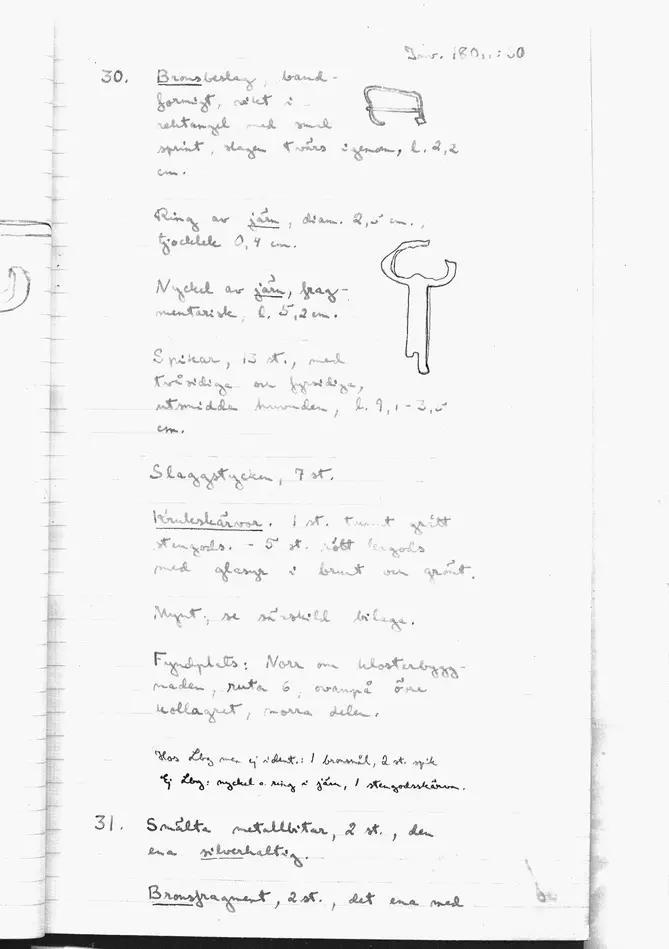 Inv. 180
30. Bronsbeslag, band-
formigt, vikt i
rektangel med smal
sprint, slagen tvärs igenom, l. 2,2
cm.
Ring av järn, diam. 2,5 cm.,
tjocklek 0,4 cm.
Nyckel av järn, frag-
mentarisk, l. 5,2 cm.
Spikar, 13 st., med
tvåsidiga och fyrsidiga,
utsmidda huvuden, l. 9,1-3,5
cm.
Slaggstycken, 7 st.
Krukskärvor. 1 st. tunnt grått
stengods. - 5 st. rött lergods
med glasyr i brunt och grönt.
Mynt, se särskild bilaga.
Fyndplats: Norr om klosterbygg-
naden, ruta 6, ovanpå övre
kollagret, norra delen.
Hos Lbg men ej ident.: 1 bronsnål, 2 st. spik
Ej Lbg: nyckel o. ring i järn, 1 stengodsskärva.
31. Smälta metallbitar, 2 st., den
ena silverhaltig.
Bronsfragment, 2 st., det ena med